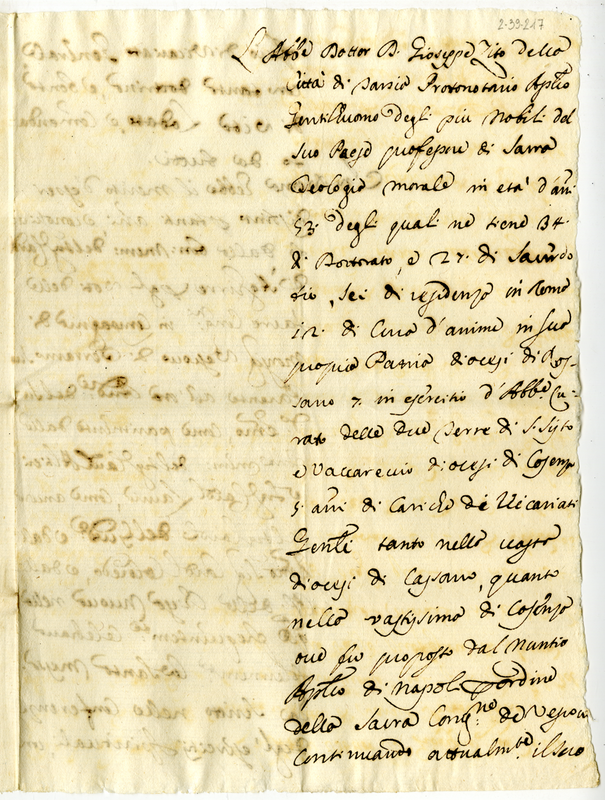 2-39-217
L'Abbe Dottor D. Gioseppe Zito della
Città di Sarsia Protonotario Aplico
Gentilhuomo degli più Nobili del
suo Paese professore di Sacra
Teologia morale in età d'anni
53. degli quali ne tiene 34.
di Dottorato, e 27. di Sacerdo
tio, sei di residenza in Roma
12. di Cura d'anime in sua
propria Patria diocesi di Ros-
sano 7. in esercitio d'Abbe Cu-
rato delle due Serre di S. Sisto
e Vaccareccio diocesi di Cosenza
5. anni di Cariche de Vicariati
Genli tanto nella vasta
diocesi di Cassano, quanto
nella vastissima di Cosenza
ove fu proposto dal Nuntio
Aplico di Napoli per ordine
della Sacra Congne de Vescovi
Continuando attualmte il suo